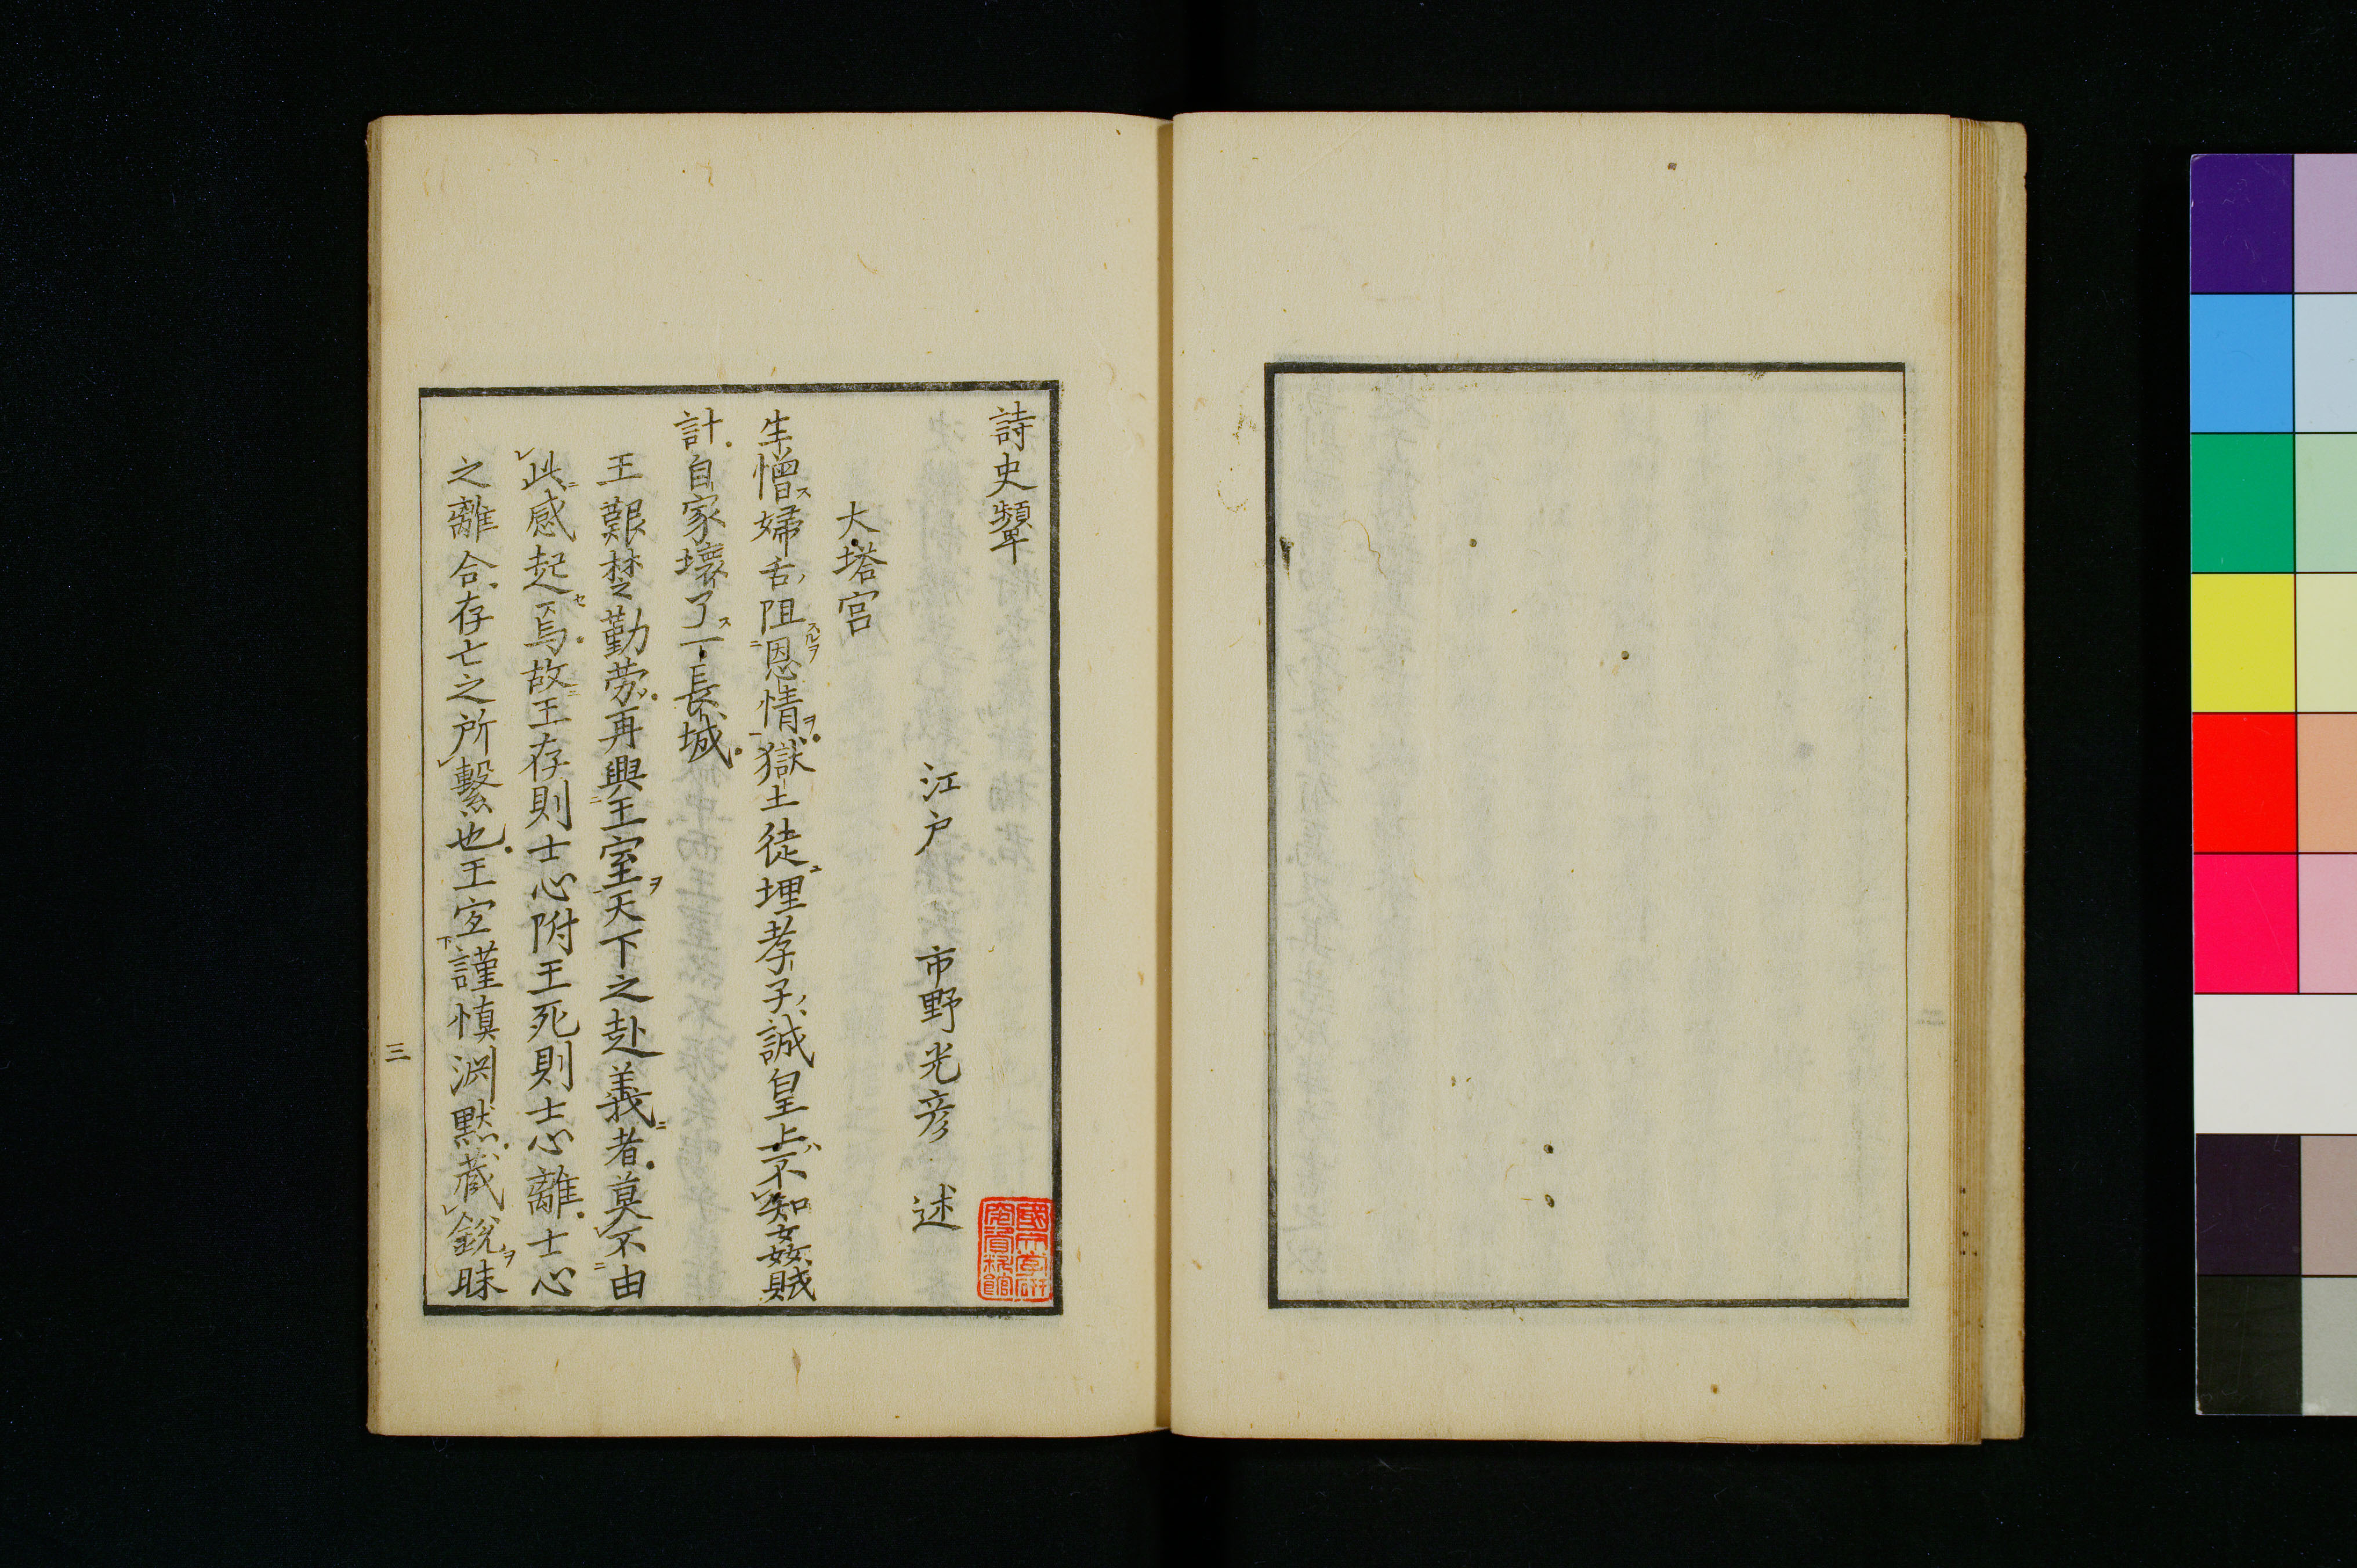 詩史顰
江戸 市野光彦 述
大塔宮
生憎ス婦舌ノ阻スルヲ恩情ヲ。獄土徒ニ埋孝子ノ誠皇上ハ不知姦賊
計。自家壊了ス一長城。
王艱楚勤労。再興王室ヲ天下之赴義ニ者。莫不由
此感起セ焉。故ニ王存則士心附王死則士心離。士心
之離合。存亡之所繫也。王宜謹慎渊黙。蔵鋭ヲ昧
三
二